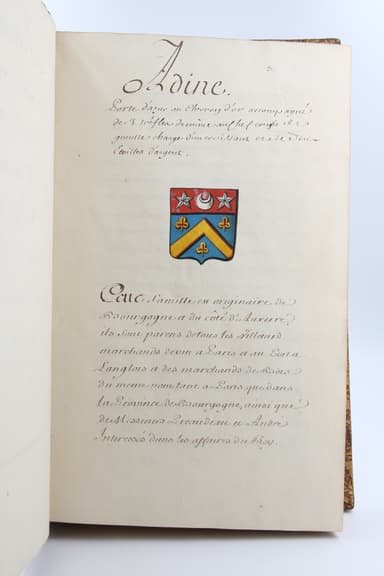 Adine.
Porte d'azur au chevron d'or accompagné
de 3 trèfles de même au chef cousu de
gueulle chargé d'un croissant et de deux
Etoilles d'argent.
Cette famille est originaire de
Bourgogne et du côté d'Auxerre
ils sont parens de tous les
marchands de vin a Paris et au
Langlois et des marchands de bois
du meme nom tant a Paris que dans
la Province de Bourgogne, ainsi que
de Messieurs et André
Interessés dans les affaires du Roy.